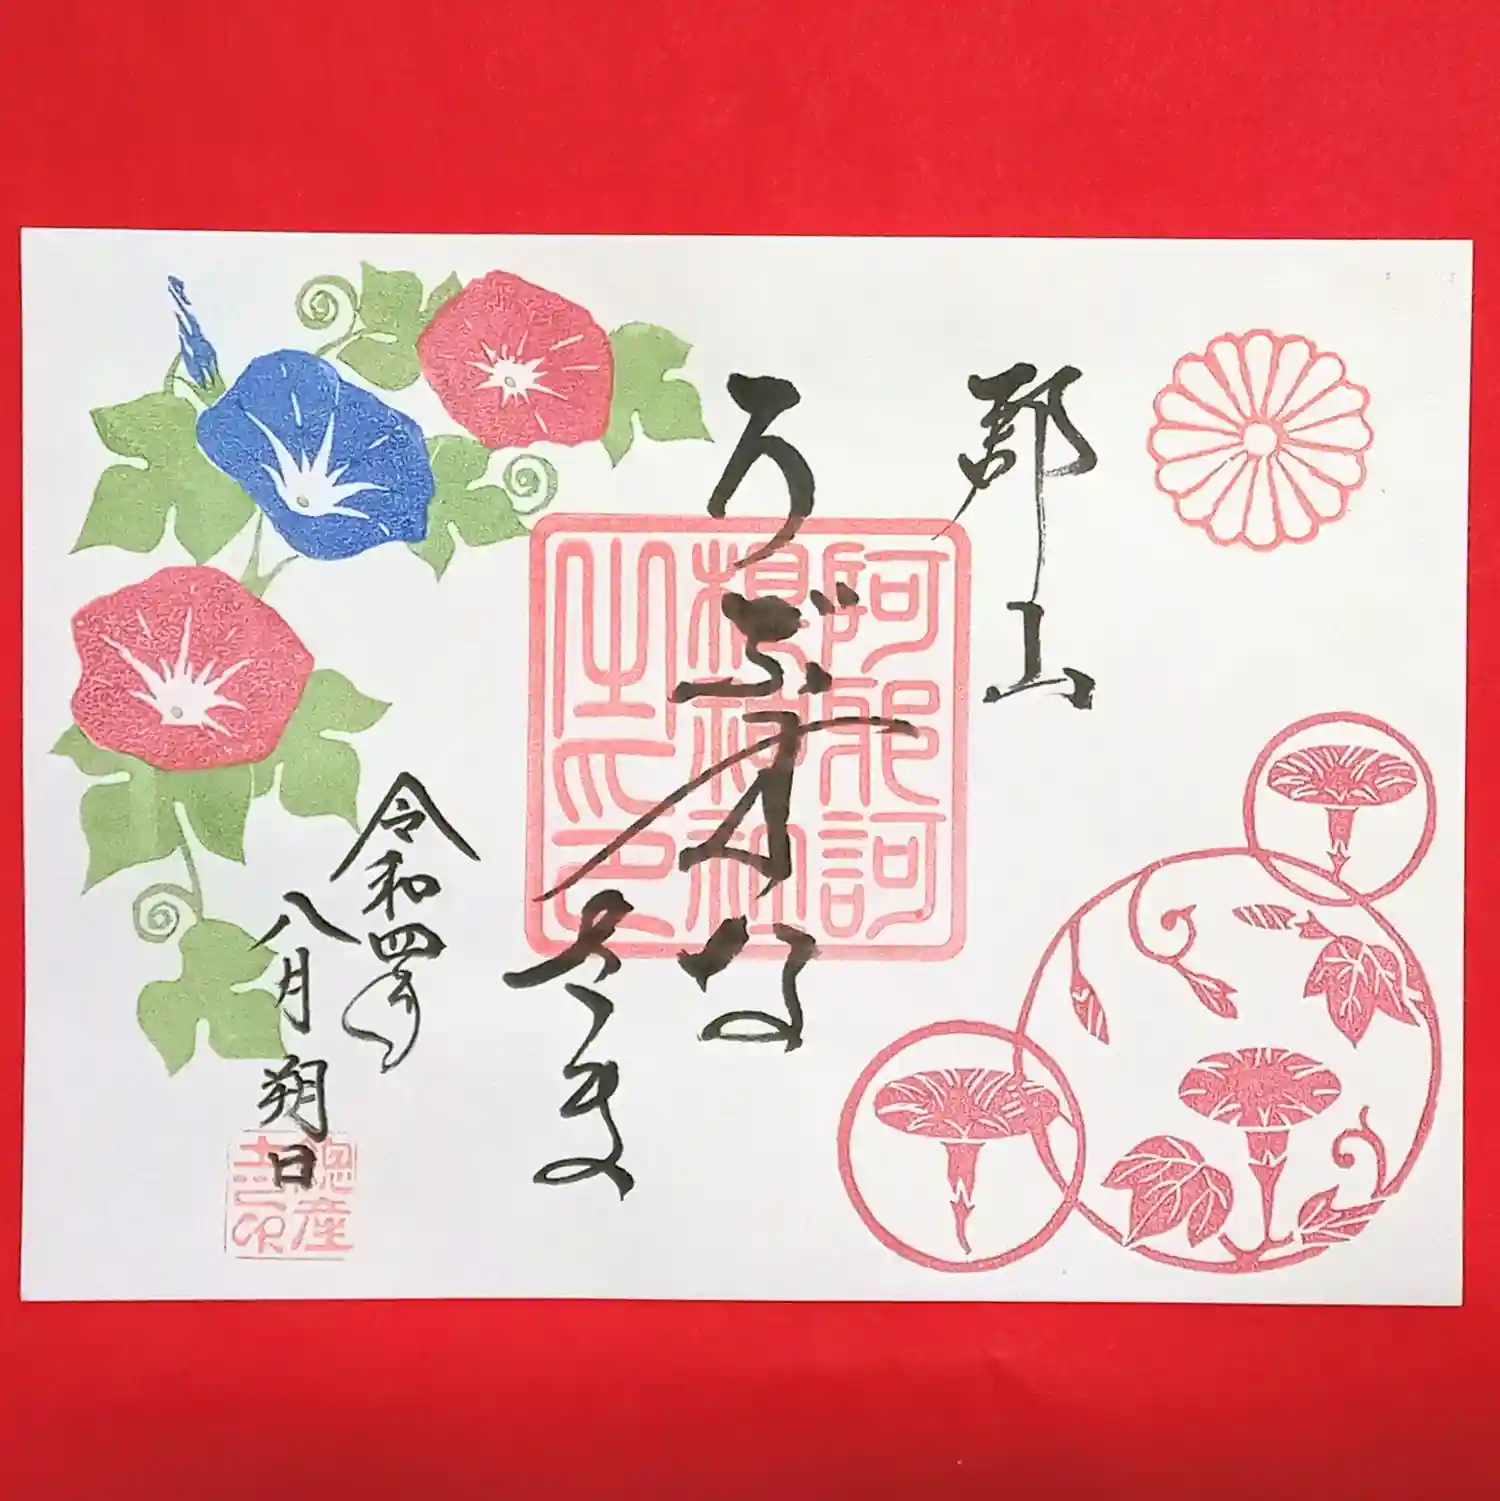 郡山
うぶすな
さま
阿邪訶
根神社
之印
令和四年
八月朔日
總産
土印